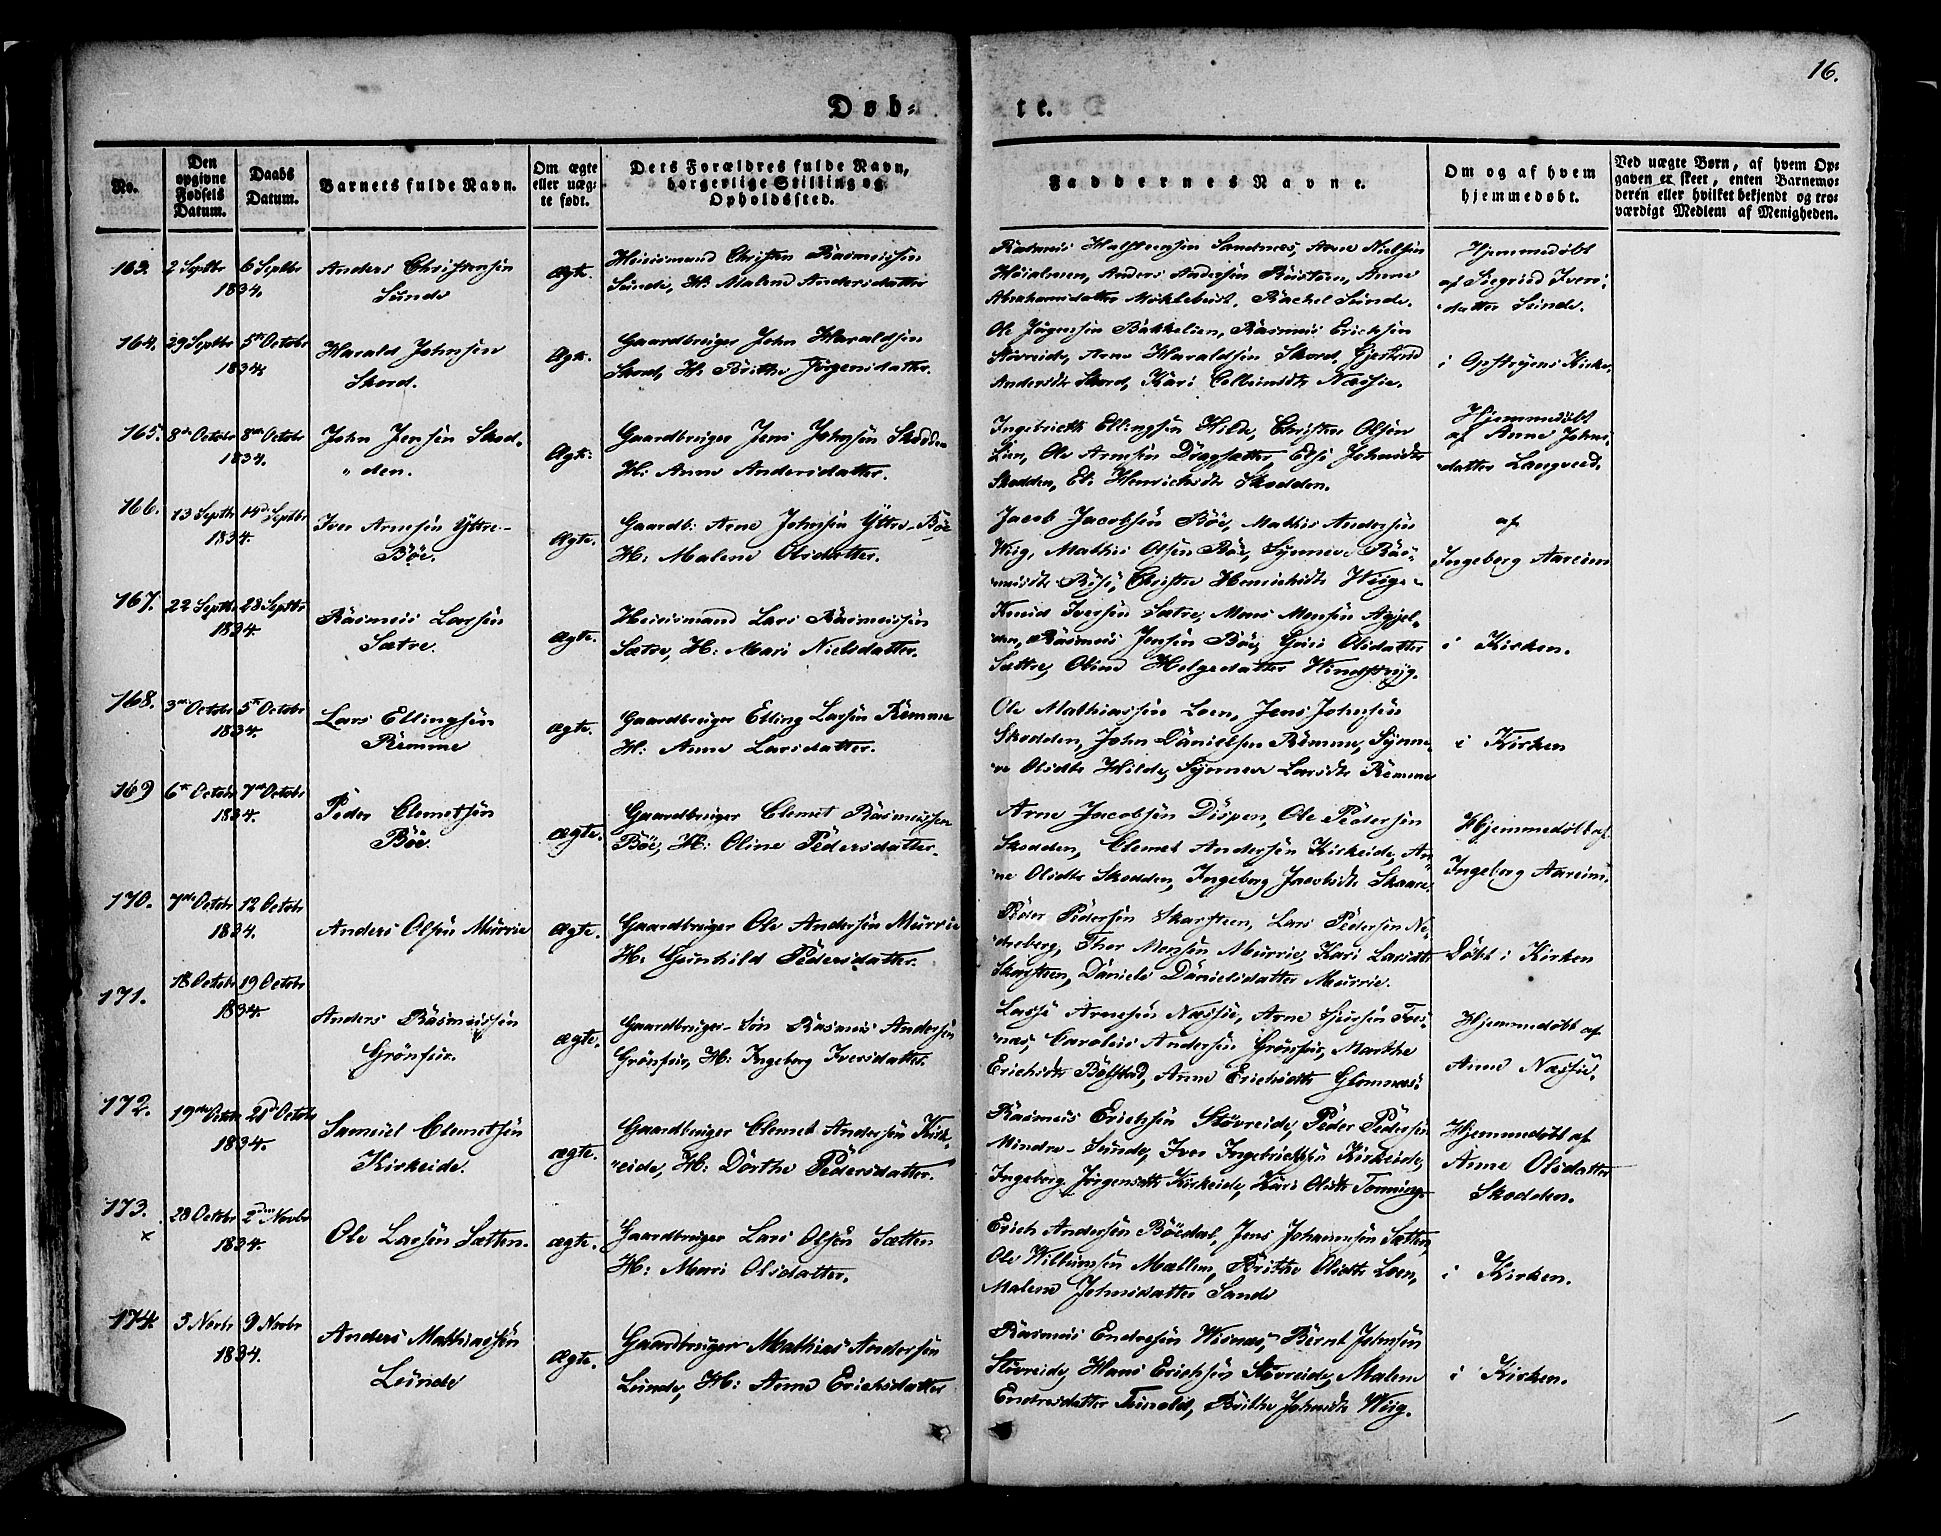 16.
Døb-
te.
No.
Den opgivne Fødsels Datum.
Daabs Datum.
Barnets fulde Navn.
Om ægte eller uæg-te født.
Dets Forældres fulde Navn, borgerlige Stilling og Opholdssted.
Faddernes Navne.
Om og af hvem hjemmedøbt.
Ved uægte Børn, af hvem Op-
gaven er skeet, enten Barnemo-
deren eller hvilket bekjendt og tro-
værdigt Medlem af Menigheden.
163. 2 Septbr 6 Septbr
1834.
Anders Christensen
Sunde
ægte.
Huusmand Christen Rasmussen
Sunde, H: Malene Andersdatter
Rasmus Halsteensen Sandnes, Arne Nielsen
Anders Andersen Anne
Abrahamsdatter Myklebust, Rachel Sunde.
Hjemmedøbt
af Siegrid Ivers-
datter Sunde.
164. 29 Septbr 5te Octobr
1834
Harald Johnsen
Skord.
Ægte.
Gaardbruger John Haraldsen
Skord, H: Brithe Jørgensdatter.
Ole Jørgensen Bakkelien, Rasmus Erichsen
Støvreide, Arne Haraldsen Skord, Gjertrud
Andersdt Skord, Kari Næssie.
i Opstryens Kirke.
165. 8de Octobr 8de Octobr
1834.
John Jensen Skod-
"den.
Ægte.
Gaardbruger Jens Johnsen Skodden
H: Anne Andersdatter.
Ingebricth Ellingsen Hilde, Christen Olsen
Lien, Ole Arnesen Dragsætter, Else Johnsdt
Skodden, Eli Henrichsdt Skodden.
Hjemmedøbt
af Anne Johns-
datter Langveed.
166. 13 Septbr 14de Septbr
1834.
Iver Arnesen Yttre-
Böe.
Ægte.
Gaardb: Arne Johnsen Yttre-Böe
H: Malene Olsdatter.
Jacob Jacobsen Böe, Mathis Andersen
Wiig, Mathis Olsen Böe, Synneve Ras-
musdt Christie Henrichsdt Wiig.
af
Ingeberg Aareim
167. 22 Septbr 28 Septbr
1834.
Rasmus Larsen
Sætre.
Ægte.
Huusmand Lars Rasmussen
Sætre, H: Mari Nielsdatter.
Knud Iversen Sætre, Mons Monsen
Rasmus Jensen Böe, Guri Olsdatter
Sætre, Oline Helgedatter
i Kirken.
168. 3die Octobr 5te Octobr
1834.
Lars Ellingsen
Remme
Ægte.
Gaardbruger Elling Larsen Remme
H: Anne Larsdatter.
Ole Mathiassen Loen, Jens Johnsen
Skodden, John Danielsen Remme, Synne-
ve Olsdt Hilde, Synneve Larsdt Remme
i Kirken
169 6te Octobr 7de Octobr
1834.
Peder Clemetsen
Böe.
Ægte.
Gaardbruger Clemet Rasmussen
Böe, H: Oline Pedersdatter.
Arne Jacobsen Dispen, Ole Pedersen
Skodden, Clemet Andersen Kirkeide, An-
ne Olsdt Skodden, Ingeborg Jacobsdt Skaare.
Hjemmedøbt af
Ingeberg Aareim.
170. 7de Octobr 12 Octobr
1834.
Anders Olsen Murrie
Ægte.
Gaardbruger Ole Andersen Murrie
H: Gunhild Pedersdatter.
Peder Pedersen Skarsteen, Lars Pedersen Ne-
dreberg, Thor Monsen Murrie, Kari Larsdt
Skarsteen, Daniele Danielsdatter Murrie.
Døbt i Kirken
171. 18 Octobr 19 Octobr
1834.
Anders Rasmussen
Grönfur.
ægte.
Gaardbruger-Sön Rasmus Andersen
Grönfur, H: Ingeborg Iversdatter.
Lasse Arnesen Næssie, Arne
Carolus Andersen Grönfur, Marthe
Erichsdt Bölstad, Anne Erichsdt Glomnæs.
Hjemmedøbt af
Anne Næssie.
172. 19de Octobr 21de Octobr
1834.
Samuel Clemetsen
Kirkeide.
ægte.
Gaardbruger Clemet Andersen Kirk-
"eide, H: Dorthe Pedersdatter.
Rasmus Erichsen Støvreide, Peder Pedersen
Mindre-Sunde, Iver Ingebrichtsen Kirkeide,
Ingeborg Jörgensdt Kirkeide, Kari Olsdt Tenninge
Hjemmedøbt af
Anne Olsdatter
Skodden.
173. 28 Octobr 2den Novbr
x 1834.
Ole Larsen Sætten.
ægte.
Gaardbruger Lars Olsen Sætten
H: Mari Olsdatter.
Erich Andersen Böedal, Jens Johannsen Sætten,
Ole Willumsen Mællem, Brithe Olsdt Loen,
Malene Johnsdatter Sande
i Kirken.
174 3 Novbr 9 Novbr
1834.
Anders Mathiassen
Lunde
Ægte.
Gaardbruger Mathias Andersen
Lunde, H: Anne Erichsdatter
Rasmus Endresen Wisnæs, Bernt Johnsen
Støvreide, Hans Erichsen Støvreide, Malene
Endresdatter Brithe Johnsdt Wiig.
i Kirken.